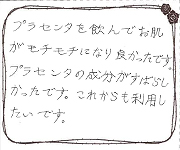 プラセンタを飲んでお肌
がモチモチになり良かったです。
プラセンタの成分がすばらし
かったです。これからも利用し
たいです。